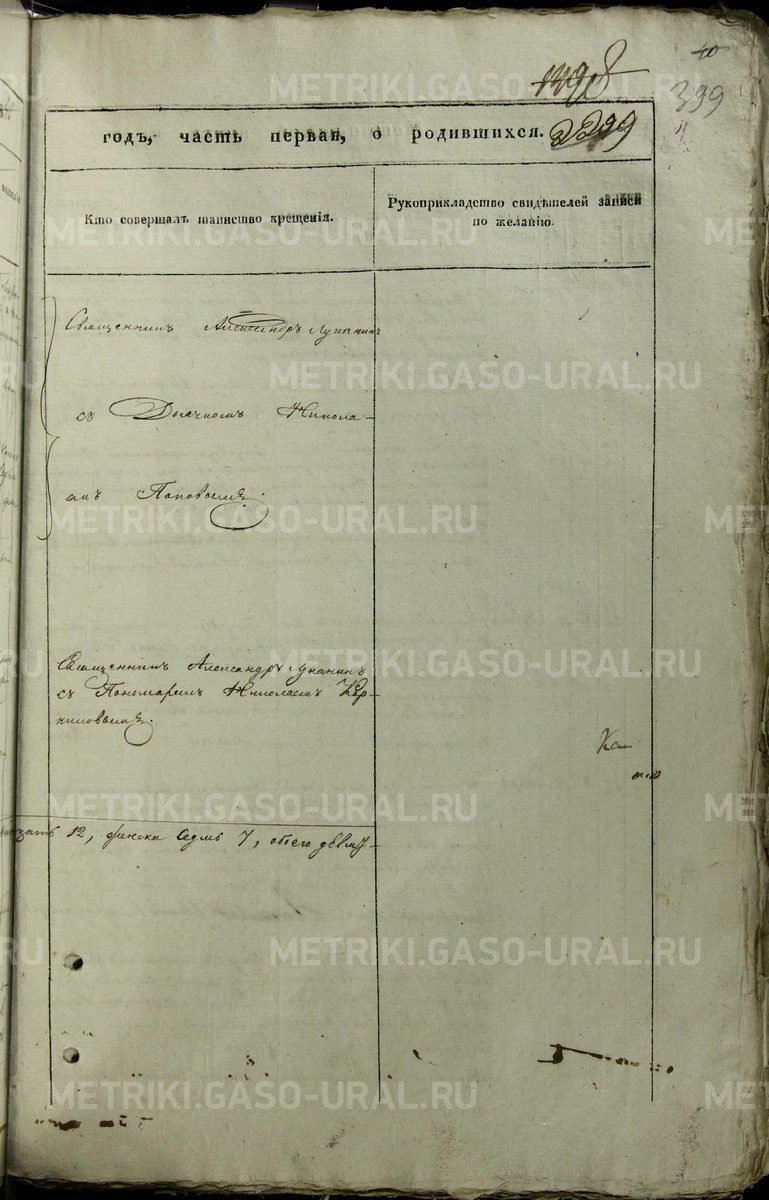 40
1398
399
годъ, часть первая, о родившихся.
399
Кто совершалъ таинство крещенія.
Рукоприкладство свидѣтелей записи
по желанію.
Священникъ Александръ Луканинъ
съ Дьячкомъ Никола-
емъ Поповымъ.
Священникъ Александръ Луканинъ
съ Пономаремъ Николаемъ Кор-
ниловымъ.
12, женска седмь 7, обоего девят-
METRIKI.GASO-URAL.RU